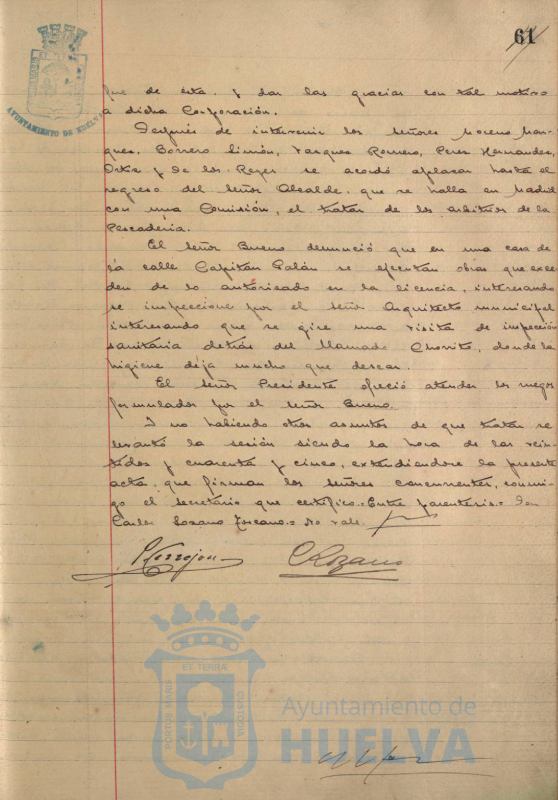 61
AYUNTAMIENTO DE HUELVA
que de ésta y dar las gracias con tal motivo
a dicha Corporación.
Después de intervenir los señores Moreno Mar-
quez, Borrero Limón, Vazquez Romero, Perez Hernandez,
Ortiz y de los Reyes se acordó aplazar hasta el
regreso del señor Alcalde, que se halla en Madrid
con una Comisión, el tratar de los arbitrios de la
Pescadería.
El señor Bueno denunció que en una casa de
la calle Capitán Galán se ejecutan obras que exce-
den de lo autorizado en la licencia, interesando
se inspeccione por el señor Arquitecto municipal
interesando que se gire una visita de inspección
sanitaria detrás del llamado Chorrito, donde la
higiene deja mucho que desear.
El señor Presidente ofreció atender los ruegos
formulados por el señor Bueno.
Y no habiendo otros asuntos de que tratar se
levantó la sesión siendo la hora de las vein-
tidos y cuarenta y cinco, extendiendose la presente
acta, que firman los señores concurrentes, conmi-
go el secretario que certifico.= Entre parentesis.= Don
Carlos Lozano Toscano.= No vale.
CLozano
PORTUS MARIS ET TERRÆ CUSTODIA
Ayuntamiento de
HUELVA